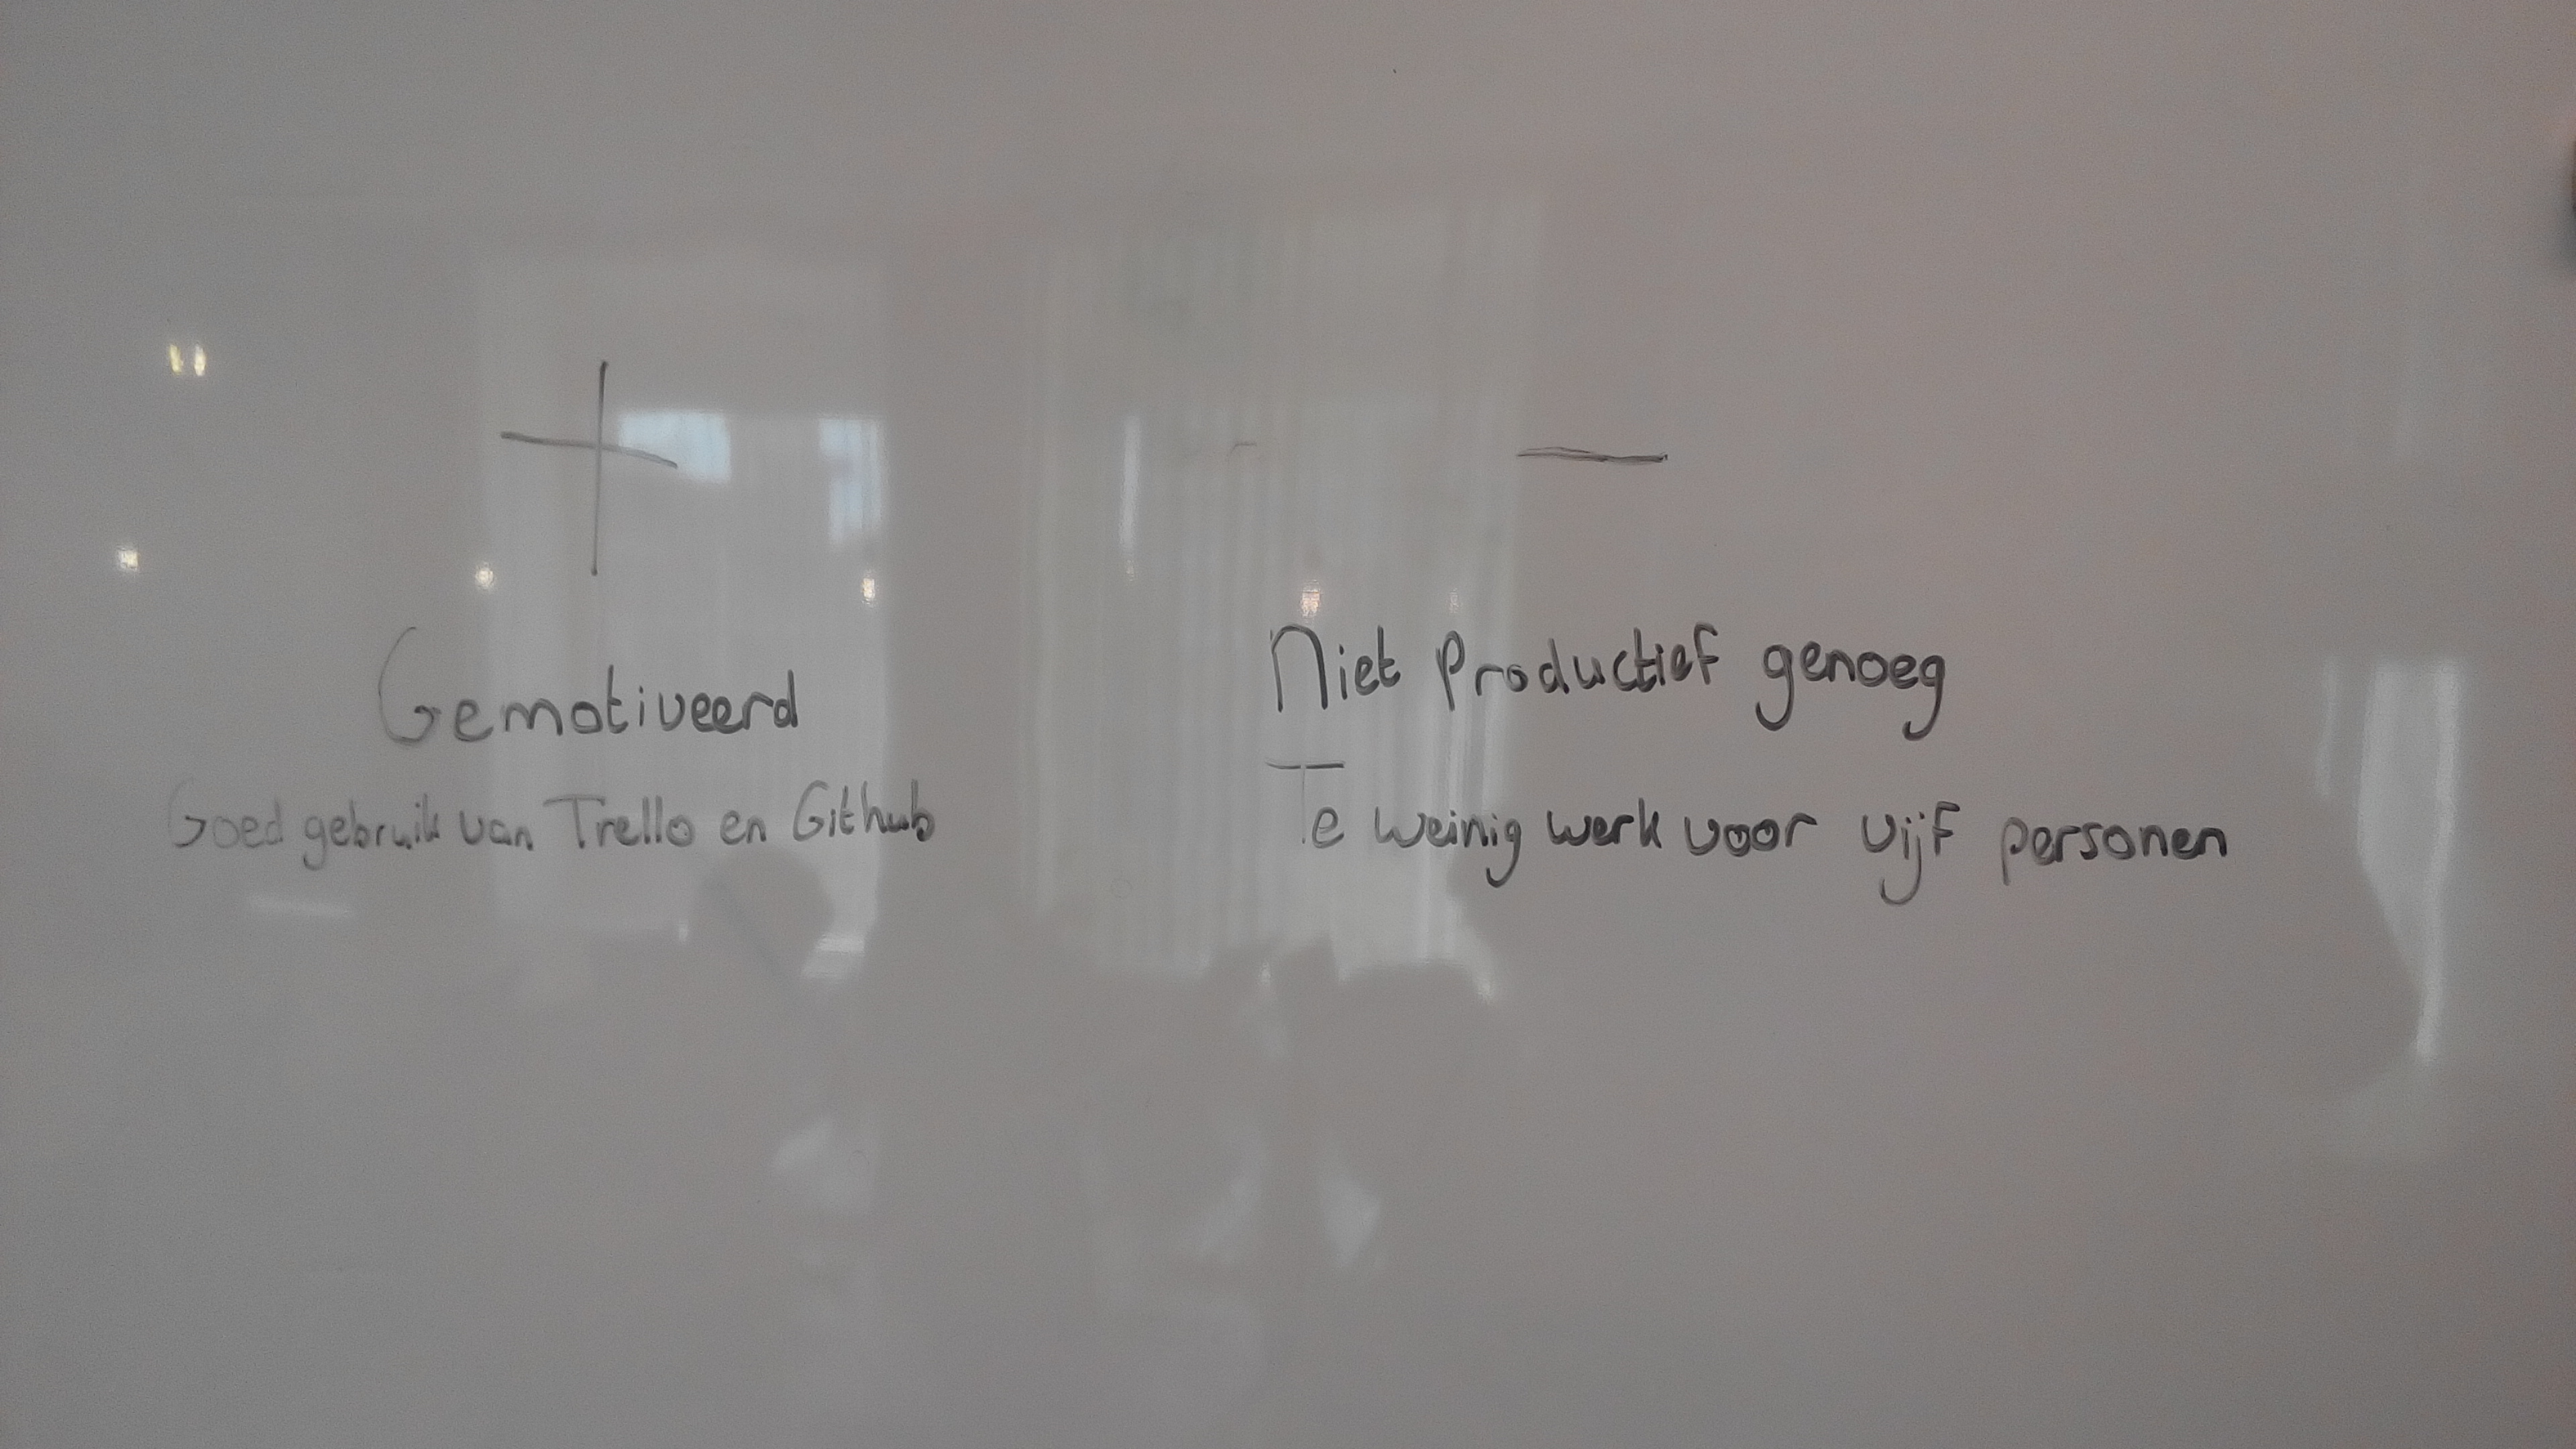 +
Gemotiveerd
Goed gebruik van Trello en Github
-
Niet Productief genoeg
Te weinig werk voor vijf personen